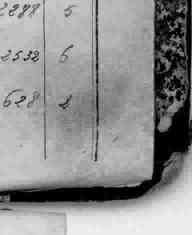 2288 5
2532 6
628 2